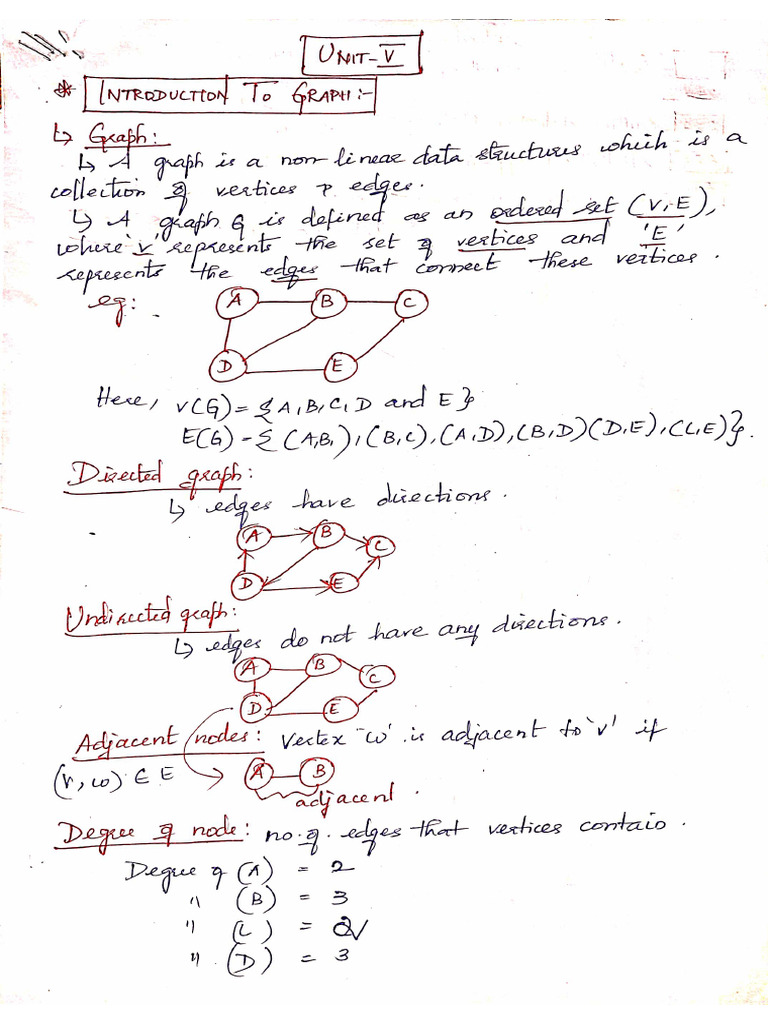 UNIT-V
* INTRODUCTION TO GRAPH:-
↳ Graph:
↳ A graph is a non linear data structures which is a
collection of vertices & edges.
↳ A graph G is defined as an ordered set (V, E),
where 'v' represents the set of vertices and 'E'
represents the edges that connect these vertices.
eg:
A B C
D E
Here, V(G) = {A, B, C, D and E}
E(G) - {(A,B,), (B,C), (A,D), (B,D)(D,E), (C,E)}.
Directed graph:
↳ edges have directions.
A B C
D E
Undirected graph:
↳ edges do not have any directions.
A B C
D E
Adjacent nodes: Vertex 'w' is adjacent to 'v' if
(v, w) ∈ E
A B
adjacent.
Degree of node: no. of. edges that vertices contain.
Degree of (A) = 2
" (B) = 3
" (C) = 2
" (D) = 3